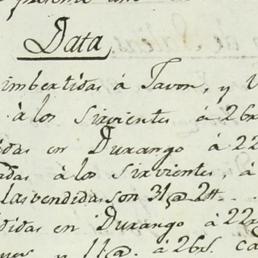 Data
imbertidas à Favor, y V
à los Sirvientes à 26r
das en Durango à 22
adas à los Sirvientes, à
las vendidas son 31@ 2tt
didas en Durango à 22r
11@. à 26r. ca